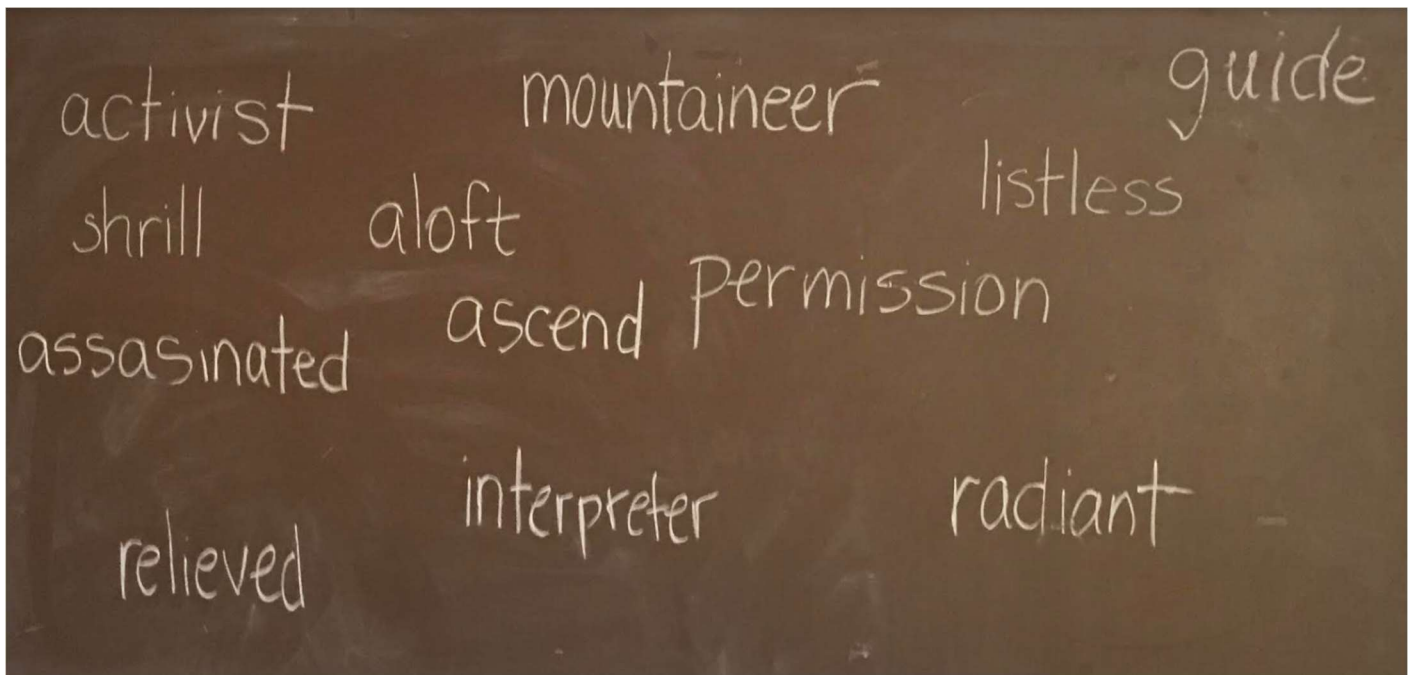 activist mountaineer guide
shrill aloft listless
assasinated ascend permission
interpreter radiant
relieved